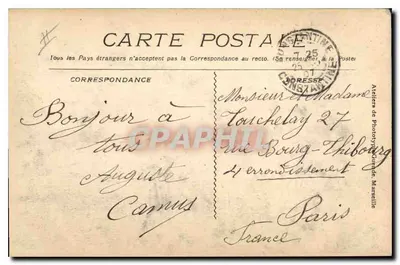 CARTE POSTALE
Tous les Pays étrangers n'acceptent pas la Correspondance au recto. (Se renseigner à la Poste)
CORRESPONDANCE
ADRESSE
CONSTANTINE
7 25
25
07
CONSTANTINE
Bonjour à
tous
Auguste
Camus
Monsieur et Madame
Tatchelay 27
rue Bourg-Thibourg
4 errondissement
Paris
France
Ateliers de Phototypie Marseille
CPAPHIL